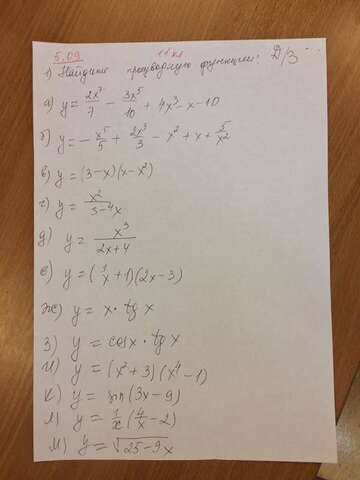 5.09 11 кл Д/З
1) Найдите производную функции:
а) y = 2x⁷/7 - 3x⁵/10 + 4x³ - x - 10
б) y = - x⁵/5 + 2x³/3 - x² + x + 5/x²
в) y = (3-x)(x-x²)
г) y = x²/(3-4x)
д) y = x³/(2x+4)
е) y = (1/x + 1)(2x-3)
ж) y = x · tg x
з) y = cos x · tg x
и) y = (x²+3)(x⁴-1)
к) y = sin(3x-9)
л) y = 1/x (4/x - 2)
м) y = √(25-9x)